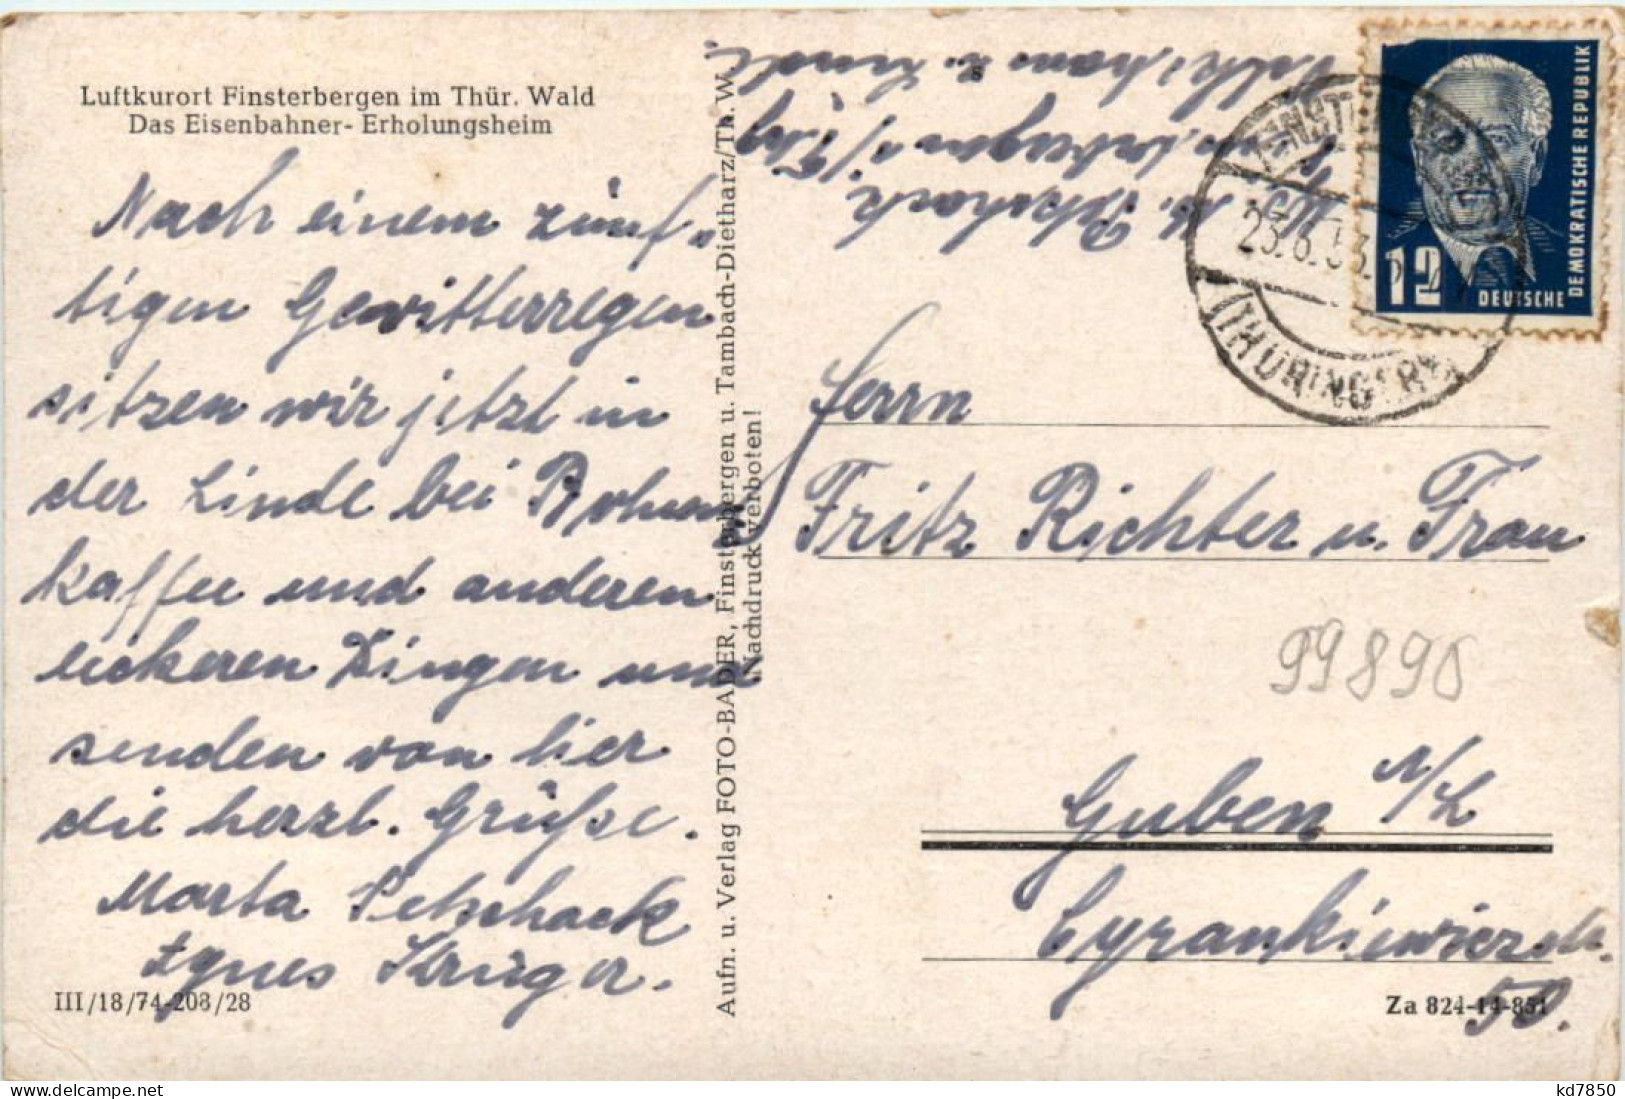 Luftkurort Finsterbergen im Thür. Wald
Das Eisenbahner-Erholungsheim
Nach einem zünf-
tigen Gewitterregen
sitzen wir jetzt in
der Linde bei Bohnen
kaffee und anderen
leckeren Dingen und
senden von hier
die herzl. Grüße.
Marta Petschack
Agnes Krüger.
III/18/74-208/28
Aufn. u. Verlag FOTO-BADER, Finsterbergen u. Tambach-Dietharz/Th. W.
Nachdruck verboten!
Petschack
Finsterbergen
FINSTERBERGEN
23.6.53.
(THÜRINGER
12
DEUTSCHE
DEMOKRATISCHE REPUBLIK
Herrn
Fritz Richter u. Frau
99890
Guben N/L
Cyrankiewiczstr.
50.
Za 824-14-851
kd7850